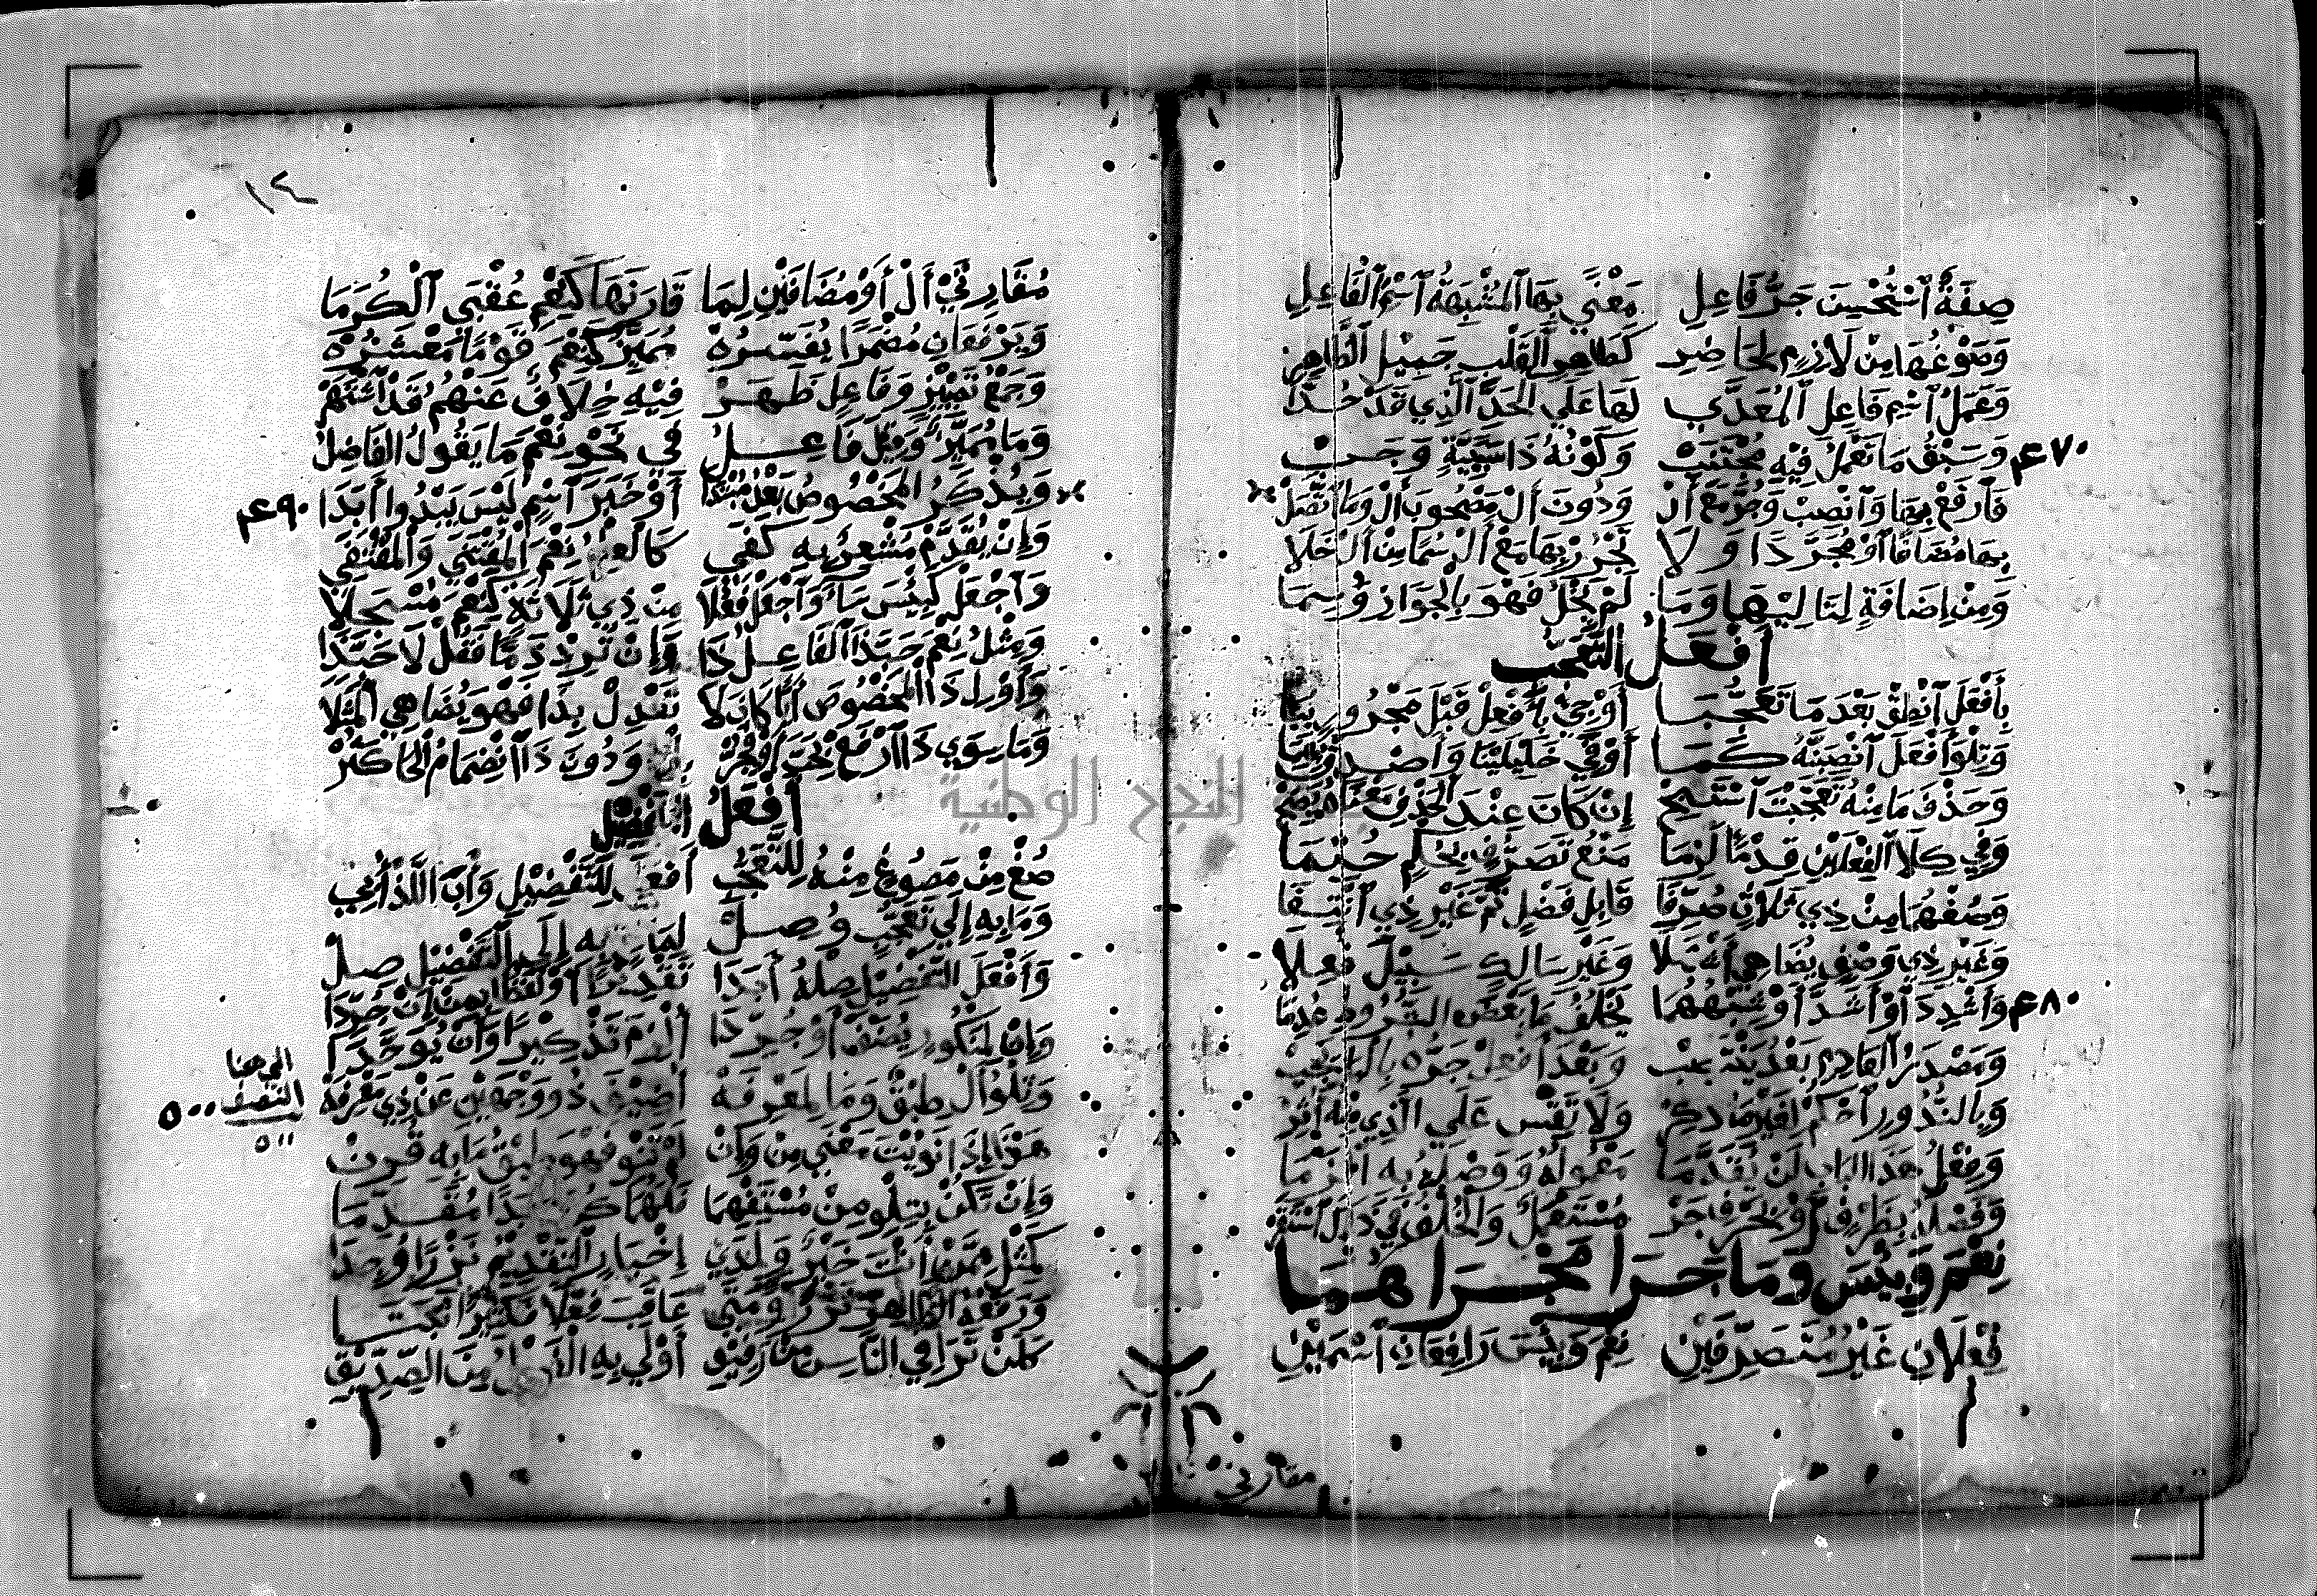 صِفَةٌ ٱسْتُحْسِنَ جَرُّ فَاعِلِ مَعْنًي بِهَا ٱلْمُشْبِهَةُ ٱسْمَ ٱلْفَاعِلِ
وَصَوْغُهَا مِنْ لَازِمٍ لِحَاضِرِ كَطَاهِرِ ٱلْقَلْبِ جَمِيْلِ ٱلظَّاهِرِ
وَعَمَلُ ٱسْمِ فَاعِلِ ٱلْمُعَدَّي لَهَا عَلَي الْحَدِّ ٱلَّذِي قَدْ حُدَّا
٤٧٠ وَسَبْقُ مَا تَعْمَلُ فِيْهِ مُجْتَنَبْ وَكَوْنُهُ ذَا سَبَبِيَّةٍ وَجَبْ
فَٱرْفَعْ بِهَا وَٱنْصِبْ وَجُرَّ مَعَ أَلْ وَدُونَ أَلْ مَصْحُوبَ أَلْ وَمَا ٱتَّصَلْ
بِهَا مُضَافًا أَوْ مُجَرَّدًا وَلَا تَجْرُرْ بِهَا مَعْ أَلْ سُمًا مِنْ أَلْ خَلَا
وَمِنْ إِضَافَةٍ لِتَالِيْهَا وَمَا لَمْ يَخْلُ فَهْوَ بِالْجَوَازِ وُسِمَا
أَفْعَلُ التَّعَجُّبِ
بِأَفْعَلَ ٱنْطِقْ بَعْدَ مَا تَعَجُّبَا أَوْ جِئْ بِأَفْعِلْ قَبْلَ مَجْرُورٍ بِبَا
وَتِلْوَ أَفْعَلَ ٱنْصِبَنَّهُ كَمَا أَوْفَي خَلِيْلَيْنَا وَأَصْدِقْ بِهِمَا
وَحَذْفَ مَا مِنْهُ تَعَجَّبْتَ ٱسْتَبِحْ إِنْ كَانَ عِنْدَ الْحَذْفِ مَعْنَاهُ يَضِحْ
وَفِي كِلَا ٱلْفِعْلَيْنِ قِدْمًا لَزِمَا مَنْعُ تَصَرُّفٍ بِحُكْمٍ حُتِمَا
وَصُغْهُمَا مِنْ ذِي ثَلَاثٍ صُرِّفَا قَابِلِ فَضْلٍ تَمَّ غَيْرِ ذِي ٱنْتِفَا
وَغَيْرِ ذِي وَصْفٍ يُضَاهِي أَشْهَلَا وَغَيْرِ سَالِكٍ سَبِيْلَ فُعِلَا
٤٨٠ وَأَشْدِدَ أَوْ أَشَدَّ أَوْ شِبْهُهُمَا يَخْلُفُ مَا بَعْضَ الشُّرُوطِ عَدِمَا
وَمَصْدَرُ ٱلْعَادِمِ بَعْدُ يَنْتَصِبْ وَبَعْدَ أَفْعِلْ جَرُّهُ بِالْبَا يَجِبْ
وَبِالنُّدُورِ ٱحْكُمْ لِغَيْرِ مَا ذُكِرْ وَلَا تَقِسْ عَلَي الَّذِي مِنْهُ أُثِرْ
وَفِعْلُ هَذَا الْبَابِ لَنْ يُقَدَّمَا مَعْمُولُهُ وَوَصْلَهُ بِهِ ٱلْزَمَا
وَفَصْلُهُ بِظَرْفٍ أَوْ بِحَرْفِ جَرّ مُسْتَعْمَلٌ وَالْخُلْفُ فِي ذَاكَ ٱسْتَقَرّ
نِعْمَ وَبِئْسَ وَمَا جَرَا مَجْرَاهُمَا
فِعْلَانِ غَيْرُ مُتَصَرِّفَيْنِ نِعْمَ وَبِئْسَ رَافِعَانِ ٱسْمَيْنِ
مقارني
١٤
مُقَارِنَيْ أَلْ أَوْ مُضَافَيْنِ لِمَا قَارَنَهَا كَنِعْمَ عُقْبَى ٱلْكُرَمَا
وَيَرْفَعَانِ مُضْمَرًا يُفَسِّرُهْ مُمَيِّزٌ كَنِعْمَ قَوْمًا مَعْشَرُهْ
وَجَمْعُ تَمْيِيْزٍ وَفَاعِلٍ ظَهَرْ فِيْهِ خِلَافٌ عَنْهُمُ قَدْ ٱشْتَهَرْ
وَمَا مُمَيِّزٌ وَقِيْلَ فَاعِلُ فِي نَحْوِ نِعْمَ مَا يَقُولُ الْفَاضِلُ
وَيُذْكَرُ الْمَخْصُوصُ بَعْدُ مُبْتَدَا أَوْ خَبَرَ ٱسْمٍ لَيْسَ يَبْدُوا أَبَدَا ٤٩٠
وَإِنْ يُقَدَّمْ مُشْعِرٌ بِهِ كَفَى كَالْعِلْمُ نِعْمَ الْمُقْتَنَي وَالْمُقْتَفَي
وَٱجْعَلْ كَبِئْسَ سَاءَ وَٱجْعَلْ فَعُلَا مِنْ ذِي ثَلَاثَةٍ كَنِعْمَ مُسْجَلَا
وَمِثْلُ نِعْمَ حَبَّذَا ٱلْفَاعِلُ ذَا وَإِنْ تُرِدْ ذَمًّا فَقُلْ لَا حَبَّذَا
وَأَوْلِ ذَا الْمَخْصُوصَ أَيًّا كَانَ لَا تَعْدِلْ بِذَا فَهْوَ يُضَاهِي ٱلْمَثَلَا
وَمَا سِوَي ذَا ٱرْفَعْ بِحَبَّ أَوْ فَجُرّ بِالْبَا وَدُونَ ذَا ٱنْضِمَامُ الْحَا كَثُرْ
أَفْعَلُ التَّفْضِيْلِ
صُغْ مِنْ مَصُوغٍ مِنْهُ لِلتَّعَجُّبِ أَفْعَلَ لِلتَّفْضِيْلِ وَأْبَ اللَّذْ أُبِي
وَمَا بِهِ إِلَي تَعَجُّبٍ وُصِلْ لِمَانِعٍ بِهِ إِلَى التَّفْضِيْلِ صِلْ
وَأَفْعَلَ التَّفْضِيْلِ صِلْهُ أَبَدَا تَقْدِيْرًا أَوْ لَفْظًا بِمِنْ إِنْ جُرِّدَا
وَإِنْ لِمَنْكُورٍ يُضَفْ أَوْ جُرِّدَا أُلْزِمَ تَذْكِيْرًا وَأَنْ يُوَحَّدَا
وَتِلْوُ أَلْ طِبْقٌ وَمَا لِمَعْرِفَهْ أُضِيْفَ ذُو وَجْهَيْنِ عَنْ ذِي مَعْرِفَهْ
الى هنا
النصف ٥٠٠
هَذَا إِذَا نَوَيْتَ مَعْنَي مِنْ وَإِنْ لَمْ تَنْوِ فَهْوَ طِبْقُ مَا بِهِ قُرِنْ
وَإِنْ تَكُنْ بِتِلْوِ مِنْ مُسْتَفْهِمَا فَلَهُمَا كُنْ أَبَدًا مُقَدِّمَا
كَمِثْلِ مِمَّنْ أَنْتَ خَيْرٌ وَلَدَي إِخْبَارٍ التَّقْدِيْمُ نَزْرًا وُجِدَا
وَرَفْعُهُ الظَّاهِرَ نَزْرٌ وَمَتَي عَاقَبَ فِعْلًا فَكَثِيْرًا ثَبَتَا
كَلَنْ تَرَا فِي النَّاسِ مِنْ رَفِيْقِ أَوْلَي بِهِ الْفَضْلُ مِنَ الصِّدِّيْقِ
جامعة النجاح الوطنية